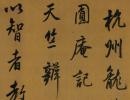 杭州龍
圓庵記
天竺辯
以智者教